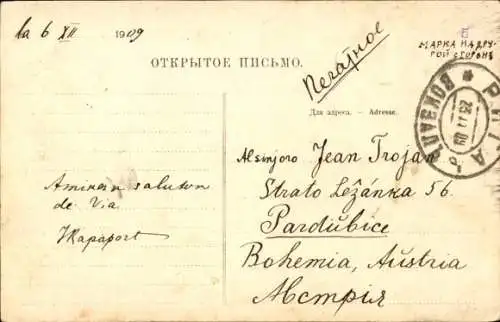 la 6 XII 1909
ОТКРЫТОЕ ПИСЬМО.
Печатное
МАРКА НА ДРУ-
ГОЙ СТОРОНѢ
Для адреса. — Adresse.
РИГА
ВОКЗАЛЪ
Alsinjoro Jean Trojan
Strato Ležánka 56.
Pardubice
Bohemia, Austria
Австрія
Aminan saluton
de Via
Rapaport